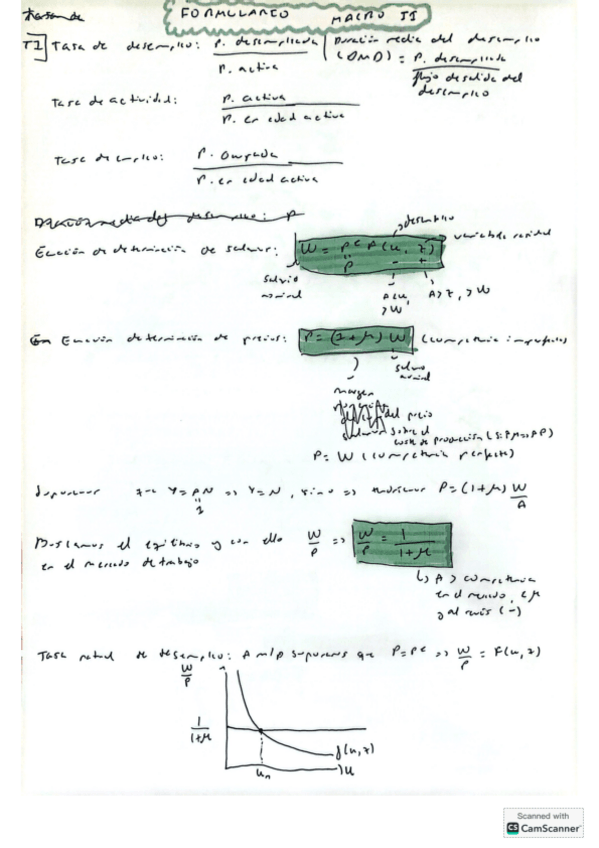 FORMULARIO MACRO II
T1] Tasa de desempleo: P. desempleada / P. activa | Duración media del desempleo (DMD) = P. desempleada / flujo de salida del desempleo
Tasa de actividad: P. activa / P. en edad activa
Tasa de empleo: P. Ocupada / P. en edad activa
Duración media del desempleo: P
Ecuación de determinación de salarios: W = P^e A (u, z)
desempleo
variable residual
P
- +
salario nominal
A > z, > W
Ecuación determinación de precios: P = (1+μ) W (competencia imperfecta)
salario nominal
margen
del precio
sobre el
coste de producción
P = W (competencia perfecta)
que Y = AN => Y = N, si no => P = (1+μ) W/A
1
Buscamos el equilibrio y con ello W/P => W/P = 1/(1+μ)
en el mercado de trabajo
↳ A > competencia
en el mercado, < μ
y al revés (-)
Tasa natural de desempleo: A m/p suponemos que P = P^e => W/P = F(u, z)
W/P
1/(1+μ)
f(u, z)
u_n
u
Scanned with
CS CamScanner